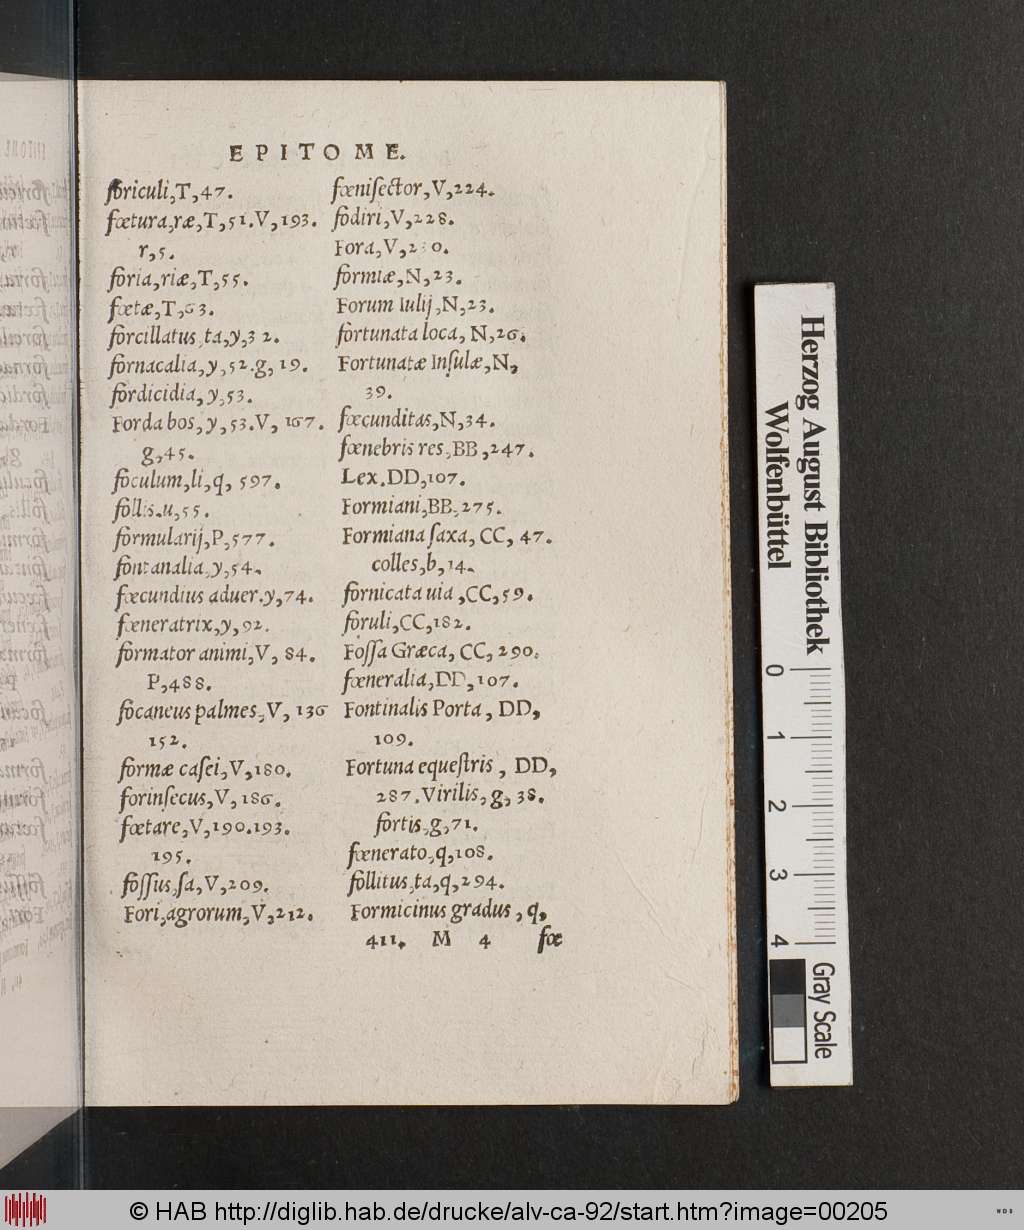 EPITOME.
foriculi, T, 47.
fœtura, ræ, T, 51. V, 193.
r, 5.
foria, riæ, T, 55.
fœtæ, T, 63.
forcillatus, ta, y, 32.
fornacalia, y, 52. g, 19.
fordicidia, y, 53.
Forda bos, y, 53. V, 167.
g, 45.
foculum, li, q, 597.
follis. u, 55.
formularij, P, 577.
fontanalia, y, 54.
fœcundius aduer. y, 74.
fœneratrix, y, 92.
formator animi, V, 84.
P, 488.
focaneus palmes, V, 136
152.
formæ casei, V, 180.
forinsecus, V, 186.
fœtare, V, 190. 193.
195.
fossus, sa, V, 209.
Fori, agrorum, V, 212.
fœnisector, V, 224.
fodiri, V, 228.
Fora, V,
formiæ, N, 23.
Forum Iulij, N, 23.
fortunata loca, N, 26.
Fortunatæ Insulæ, N,
39.
fœcunditas, N, 34.
fœnebris res, BB, 247.
Lex. DD, 107.
Formiani, BB, 275.
Formiana saxa, CC, 47.
colles, b, 14.
fornicata uia, CC, 59.
foruli, CC, 182.
Fossa Græca, CC, 290.
fœneralia, DD, 107.
Fontinalis Porta, DD,
109.
Fortuna equestris, DD,
287. Virilis, g, 38.
fortis, g, 71.
fœnerato, q, 108.
follitus, ta, q, 294.
Formicinus gradus, q,
411. M 4 fœ
Herzog August Bibliothek
Wolfenbüttel
0 1 2 3 4
Gray Scale
© HAB http://diglib.hab.de/drucke/alv-ca-92/start.htm?image=00205